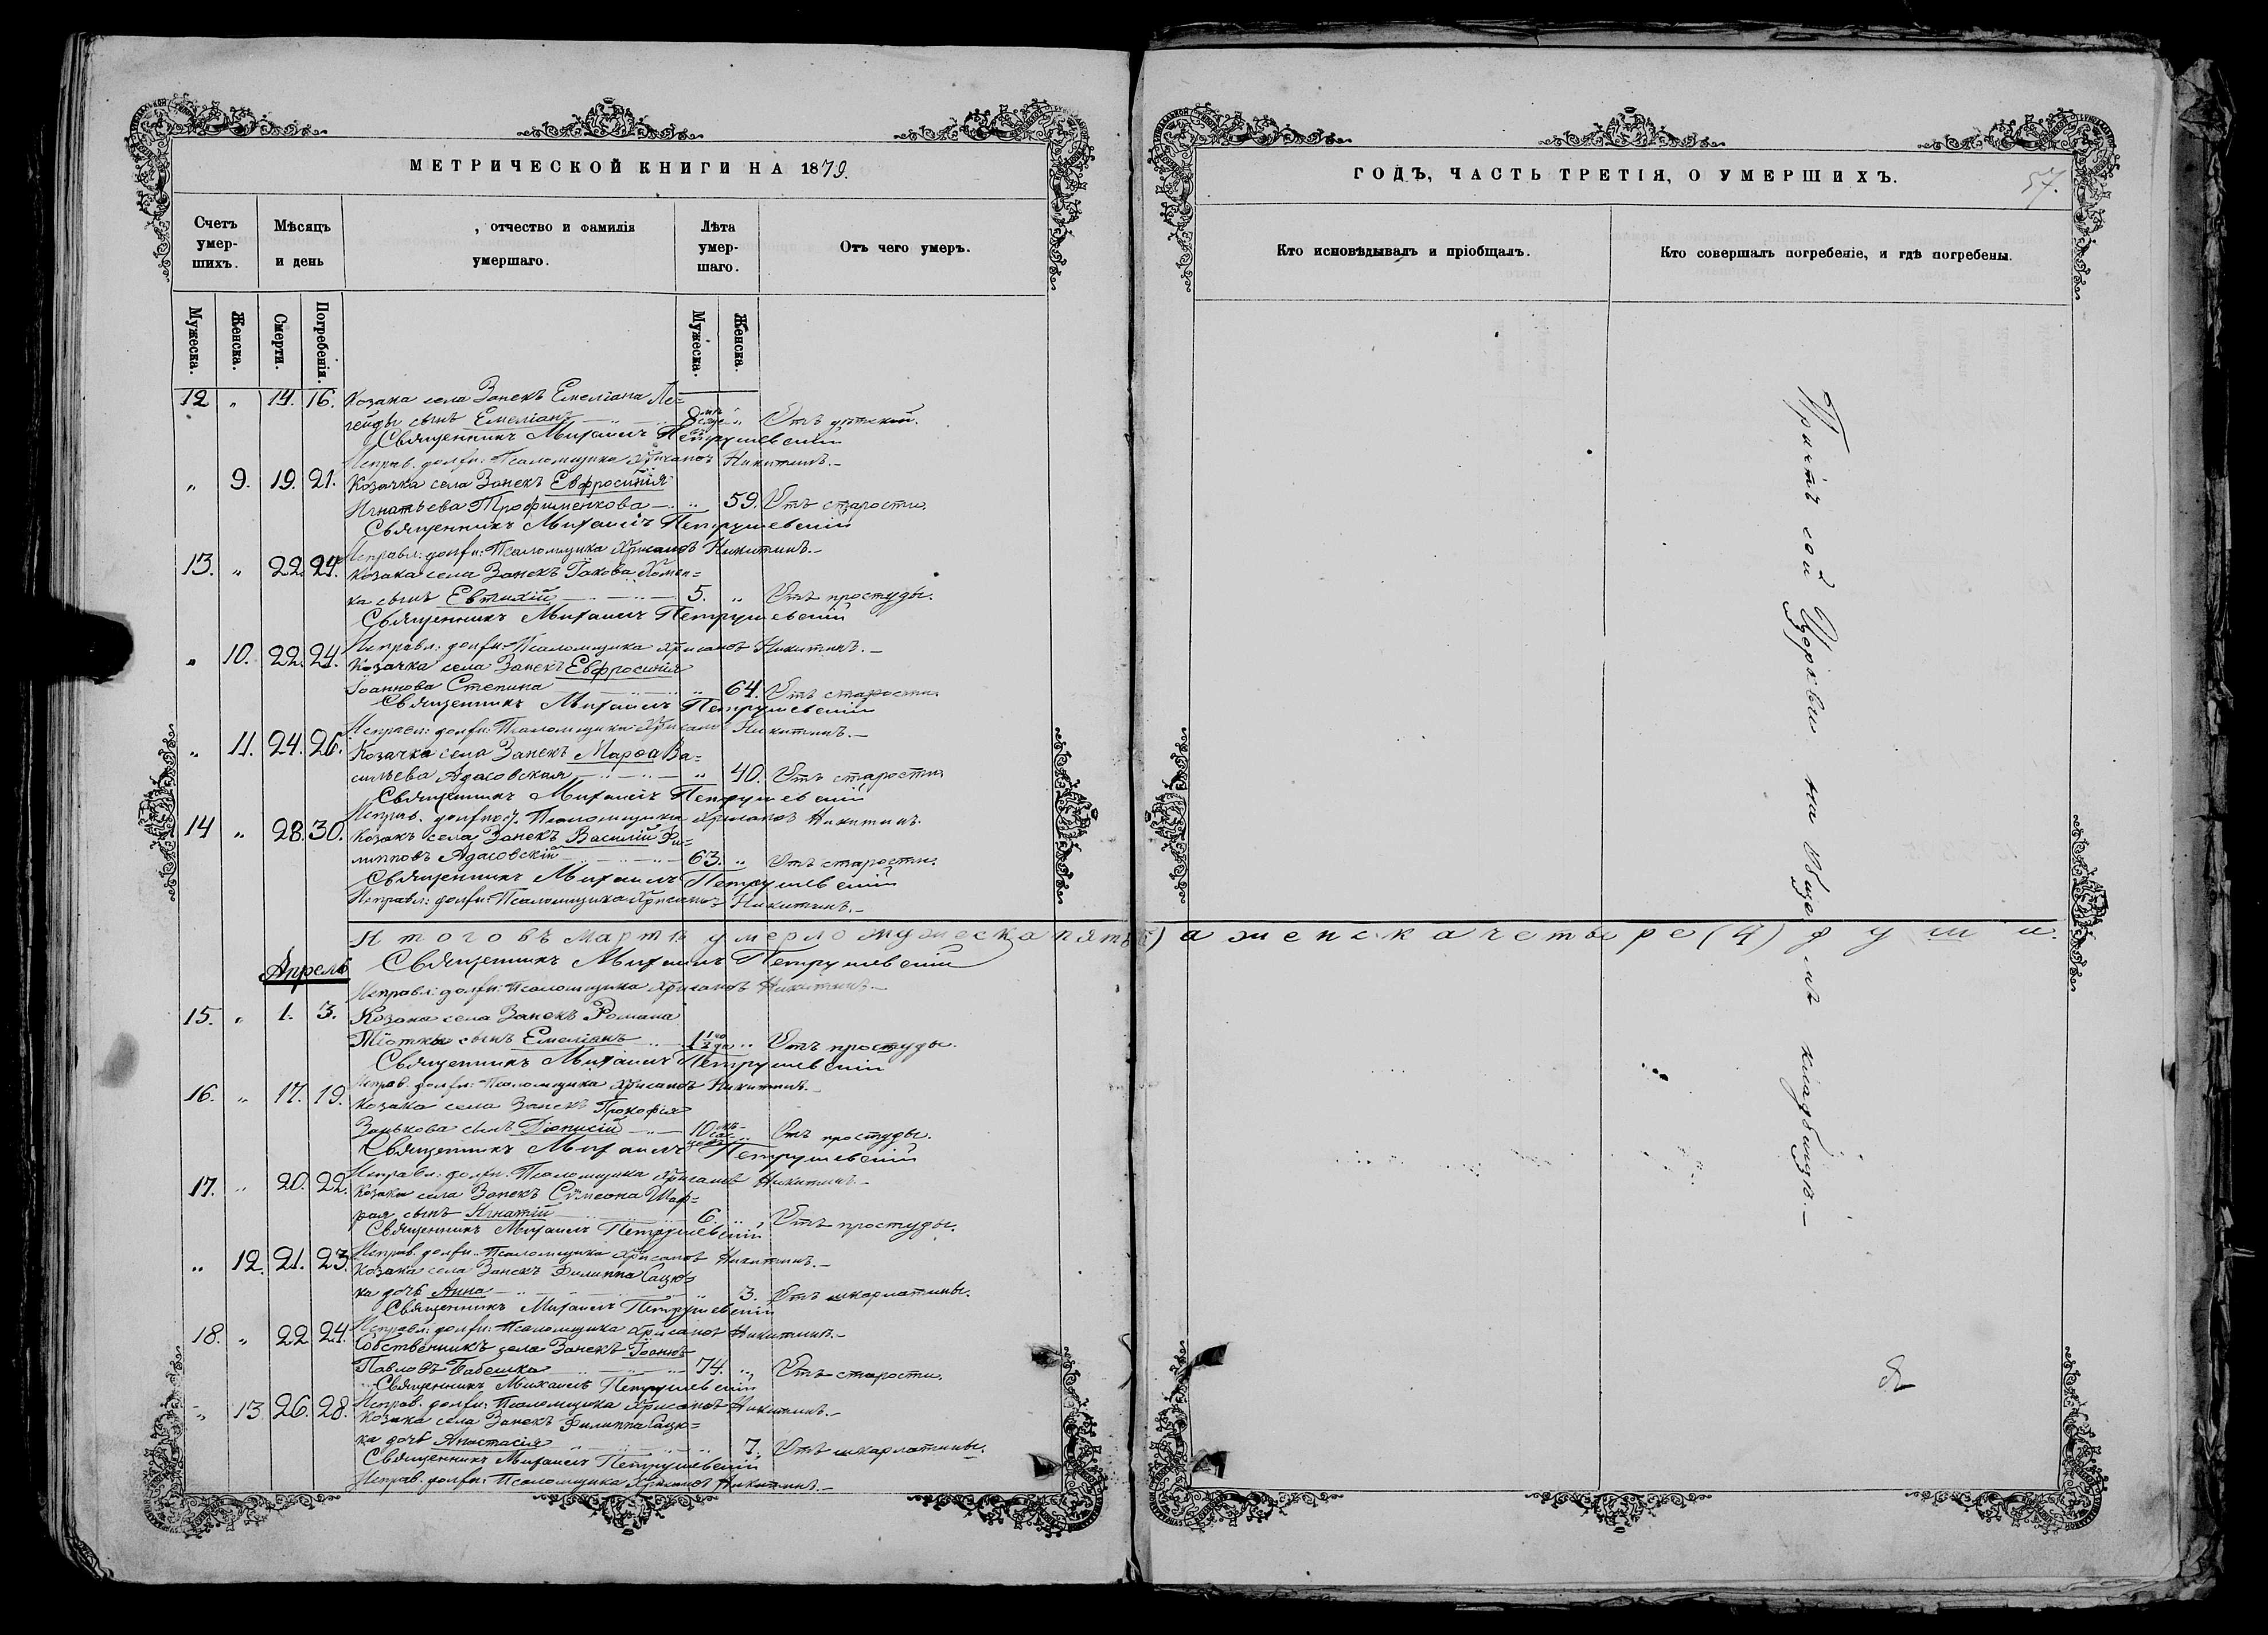 МЕТРИЧЕСКОЙ КНИГИ НА 1879.
Счетъ умер-шихъ.
Мѣсяцъ и день
, отчество и фамилія умершаго.
Лѣта умер-шаго.
Отъ чего умеръ.
Мужеска.
Женска.
Смерти.
Погребенія.
Мужеска.
Женска.
12 " 14. 16. Козака села Занекъ Емеліана Ле=
гейды сынъ Емеліанъ 8 " Отъ
Священникъ Михаилъ Петрушевскій
Исправ. должн: Псаломщика Хрисанѳъ Никитинъ.-
" 9. 19. 21. Козачка села Занекъ Евфросинія
Игнатьева Трофименкова " 59. Отъ старости.
Священникъ Михаилъ Петрушевскій
Исправл: должн: Псаломщика Хрисанѳъ Никитинъ.-
13. " 22. 24. Козака села Занекъ Іакова Хомен=
ка сынъ Евтихій 5. " Отъ простуды.
Священникъ Михаилъ Петрушевскій
Исправл: должн: Псаломщика Хрисанѳъ Никитинъ.-
" 10. 22. 24. Козачка села Занекъ Евфросинія
Іоаннова Степина " 64. Отъ старости.
Священникъ Михаилъ Петрушевскій
Исправл: должн: Псаломщика Хрисанѳъ Никитинъ.-
" 11. 24. 26. Козачка села Занекъ Марѳа Ва=
сильева Адасовская " 40. Отъ старости.
Священникъ Михаилъ Петрушевскій
Исправ. должнос. Псаломщика Хрисанѳъ Никитинъ.
14 " 28. 30. Козакъ села Занекъ Василій Фи=
липповъ Адасовскій 63. " Отъ старости.
Священникъ Михаилъ Петрушевскій
Исправл: должн: Псаломщика Хрисанѳъ Никитинъ.-
Итого въ Мартѣ умерло мужеска пять (5) а женска четыре (4) души.
Священникъ Михаилъ Петрушевскій
Апрель
Исправл: должн: Псаломщика Хрисанѳъ Никитинъ.-
15. " 1. 3. Козака села Занекъ Романа
Тіотки сынъ Емеліанъ 1½ года " Отъ простуды.
Священникъ Михаилъ Петрушевскій
Исправ. должн: Псаломщика Хрисанѳъ Никитинъ.-
16. " 17. 19. Козака села Занекъ Прокофія
Занькова сынъ Діонисій 10 мѣ-ся-цевъ " Отъ простуды.
Священникъ Михаилъ Петрушевскій
Исправл: должн: Псаломщика Хрисанѳъ Никитинъ.-
17. " 20. 22. Козака села Занекъ Сѷмеона Шап=
рая сынъ Игнатій 6 " Отъ простуды.
Священникъ Михаилъ Петрушевскій
Исправ. должн: Псаломщика Хрисанѳъ Никитинъ.-
" 12. 21. 23. Козака села Занекъ Филиппа Сацю=
ка дочь Анна " 3. Отъ шкарлатины.
Священникъ Михаилъ Петрушевскій
Исправл: должн: Псаломщика Хрисанѳъ Никитинъ.-
18. " 22 24. Собственникъ села Занекъ Іоаннъ
Павловъ Бабешка 74. " Отъ старости.
Священникъ Михаилъ Петрушевскій
Исправ. должн: Псаломщика Хрисанѳъ Никитинъ.-
" 13 26. 28. Козака села Занекъ Филиппа Сацю=
ка дочь Анастасія " 7. Отъ шкарлатины.
Священникъ Михаилъ Петрушевскій
Исправ. должн: Псаломщика Хрисанѳъ Никитинъ.-
ГОДЪ, ЧАСТЬ ТРЕТІЯ, О УМЕРШИХЪ.
57.
Кто исповѣдывалъ и пріобщалъ.
Кто совершалъ погребеніе, и гдѣ погребены.
Причтъ сей Церкви на Общемъ кладбищѣ.-